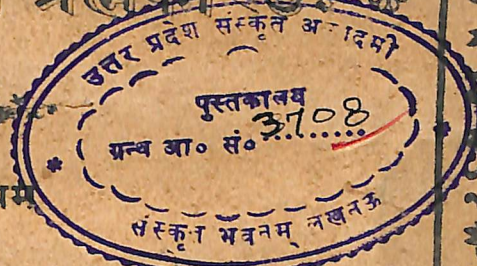 उत्तर प्रदेश संस्कृत अ दमी
पुस्तकालय
ग्रन्थ आ० सं० 3708
संस्कृत भवनम् लखनऊ